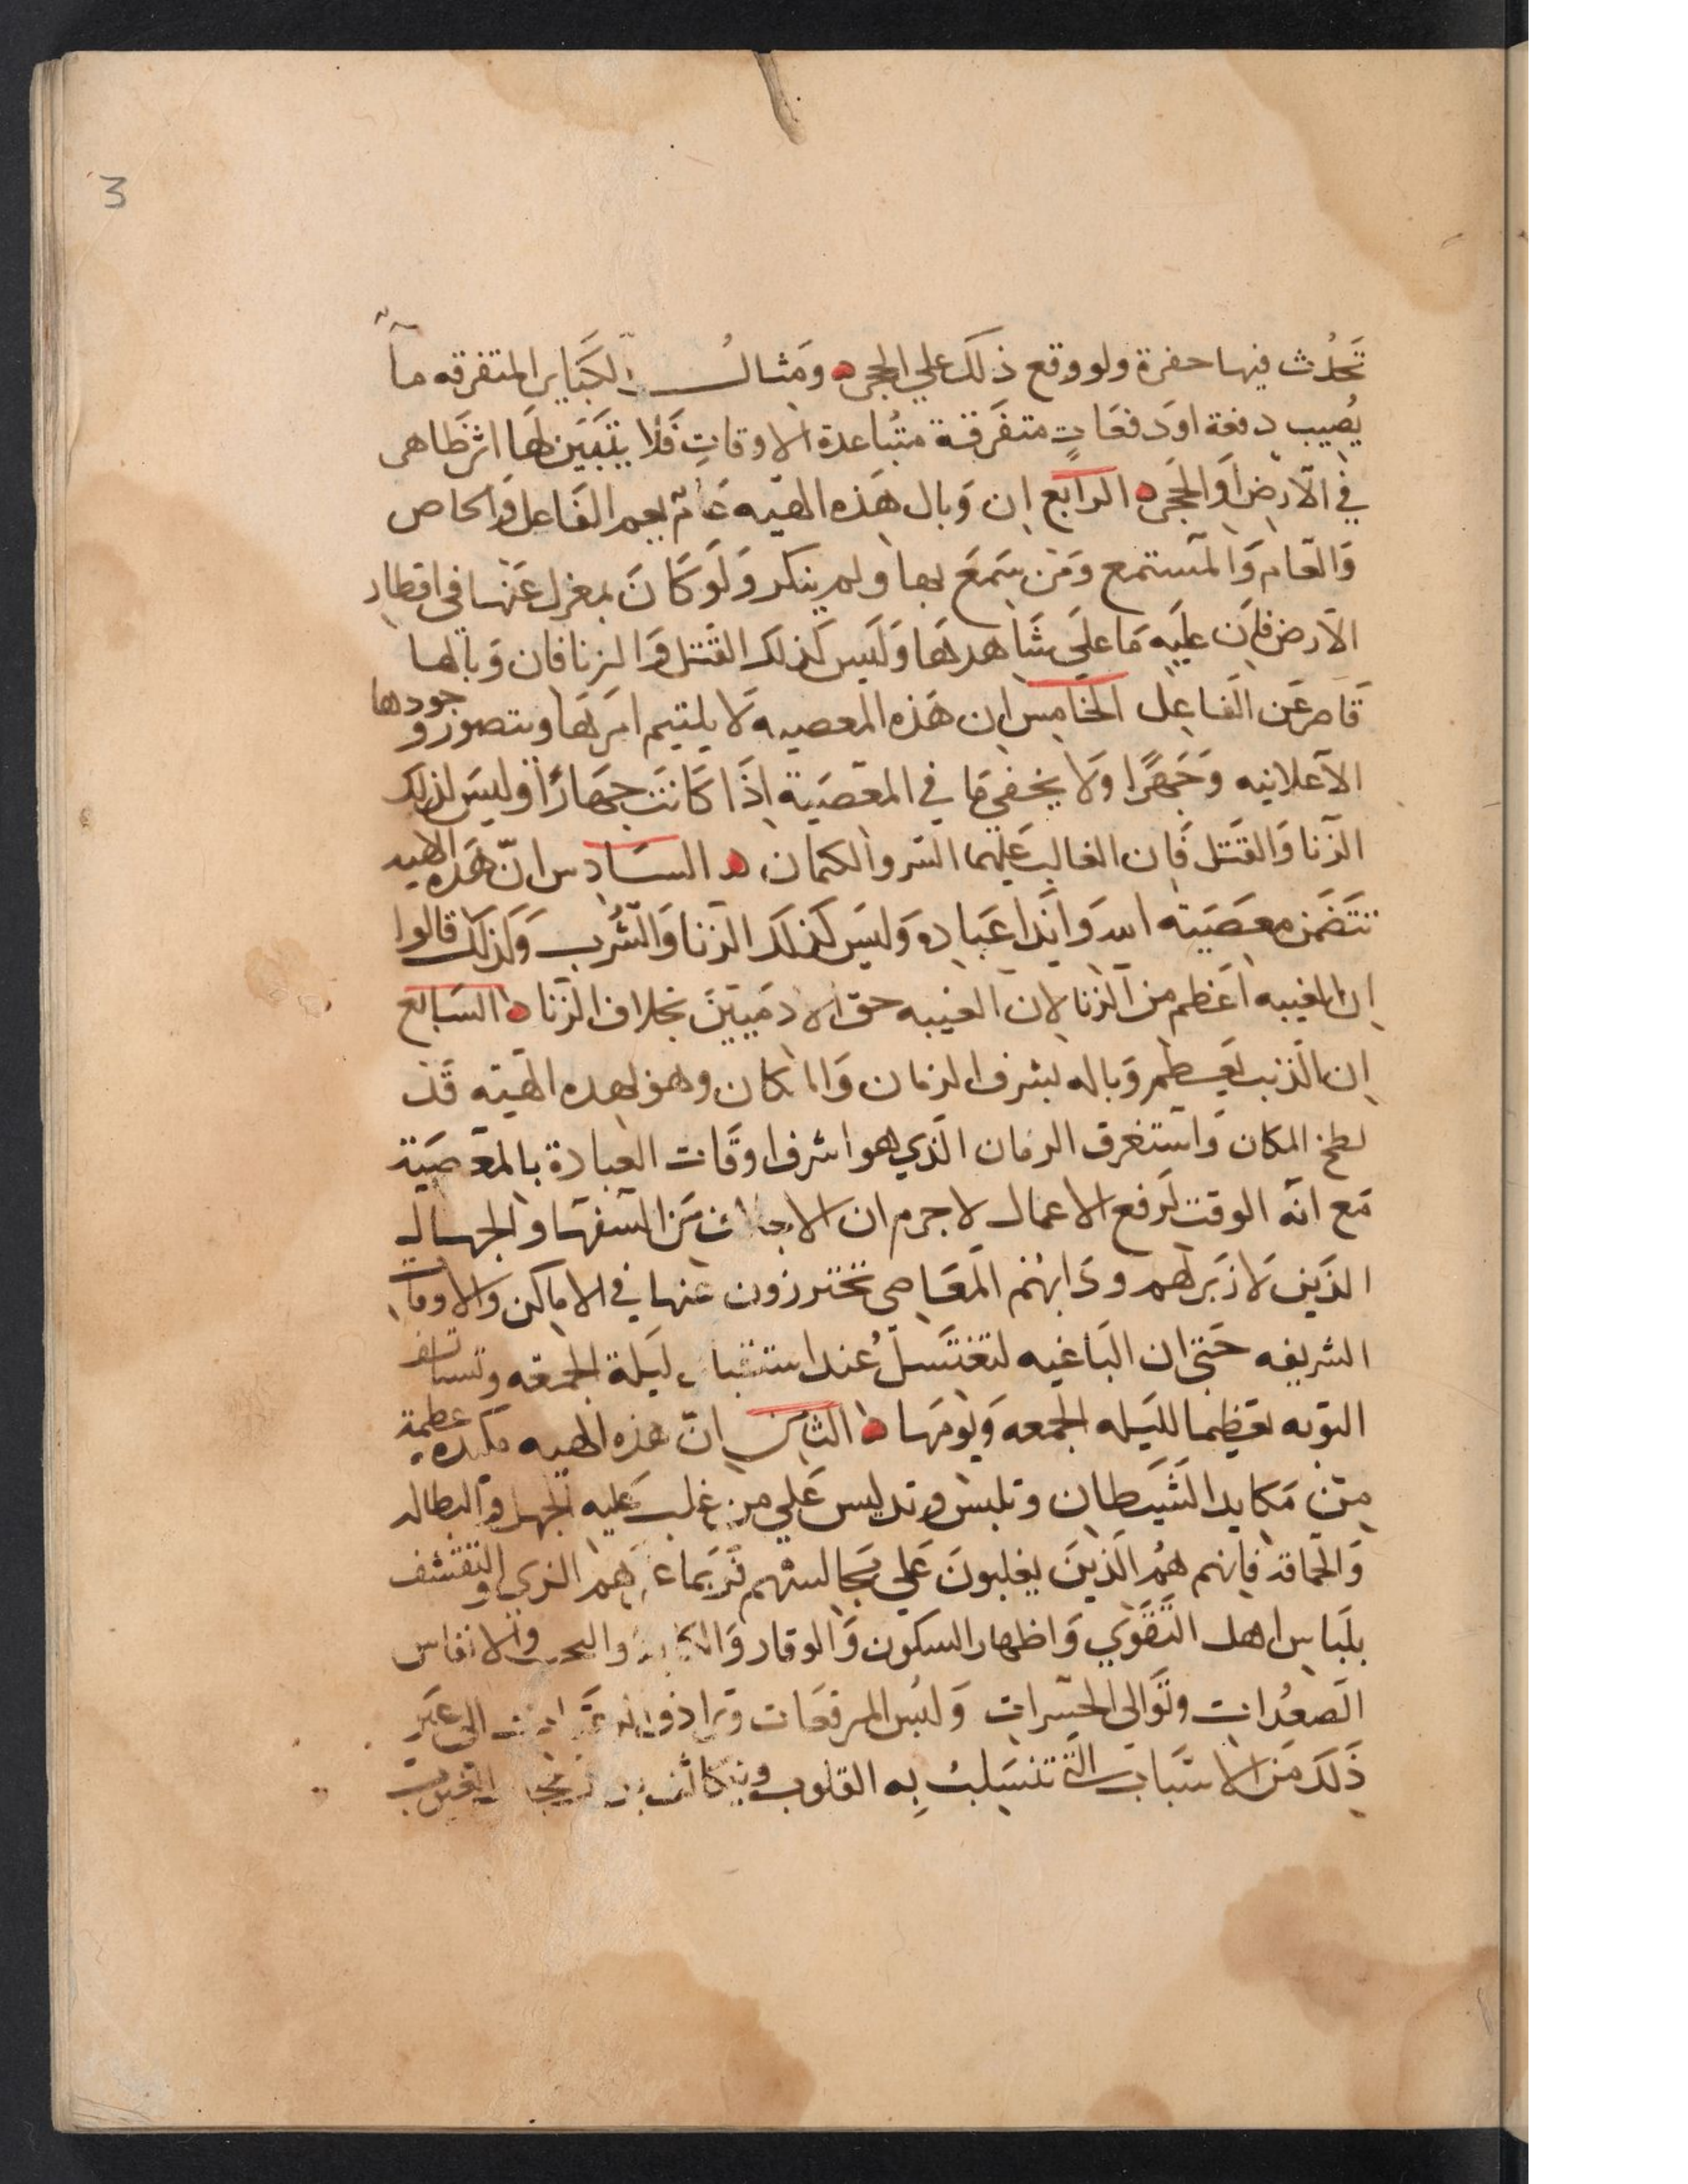 3
تَحدُث فيها حفرة ولو وقع ذلك علي الحجر ومَثالُ الكبَاير المتفرقه ما
يُصيب دفعة او دَفعَاتٍ متفَرقة متبُاعدة الاوقاتِ فَلا يتَبَيَن لهَا اثر ظَاهر
في الآرض اَو الحَجر الرابع ان وَبال هَذه الهيه عَامّ يعم الفَاعل وَالخاص
وَالعَام وَالمستمع وَمَن سَمَعَ بها ولم ينكر وَلَو كَانَ بمعزل عَنها في اقطار
الآرض فان عليَه مَا علَي شَاهدهَا وَليَس كَذلك القَتل وَالزنا فان وَبالها
قَاصر عَن الفاعِل الخامس ان هَذه المعصيه لَا يلتيم امرهَا ويتصور وجودها
الآعلانيه وَجَهرًا ولَا يخفي مَا في المعَصَية اِذَا كَانَت جهَارًا وليسَ كذلك
الزنا وَالقَتل فَان الغالب عليَهما السر والكتمان السَادس انّ هَذه الهيه
تتَضَمن معصَية الله وَايذا عَبادِه وَليسَ كَذلكَ الزنا وَالشُرب وَكَذلكَ قالوا
اِن الغيبه اعَظم من الزنا لان الغيبه حق الادمَيينَ بخلاف الزنا السَابع
اِن الذنب يعَظم وَباله بشرف الزمان وَالمكان وهو بهده الهيَه قَد
لطخ المكان وَاستَغرق الزمان الَذي هو اشرف اوقَات العبادة بالمعَصَية
مَع انّه الوقت لَرفع الاعمال لاجرم ان مَن السفهَا والجهال
الذَين لَا زَبَر لهم ودَابهُم المَعَاصي تحتَرزون عنها في الاماكن والاوقات
الشريفه حَتي ان البَاغيه لتغتَسلُ عند استقبال ليَلة الجمعَه وتستانف
التوبه تعَظيما لليَله الجمعه وَيومَها الثامن انّ هذه الهيه مكيده عظيمة
من مَكايد الشَيَطان وتلبيس وتدليس عَلي من غلب عَليه الجهل وَالبطاله
وَالحَماقة فانهم همُ الَذينَ يغلبونَ عَلي مَجَالستهم الزي والتقشف
بلَباس اهل التَقوَي وَاظهار السكون وَالوقار والانفاس
الصعُدات وتَوالي الحسَرات وَلبُس المرقعَات الي غَير
ذَلكَ مَن الاسَباب التي تنسَلبُ بِه القلوب